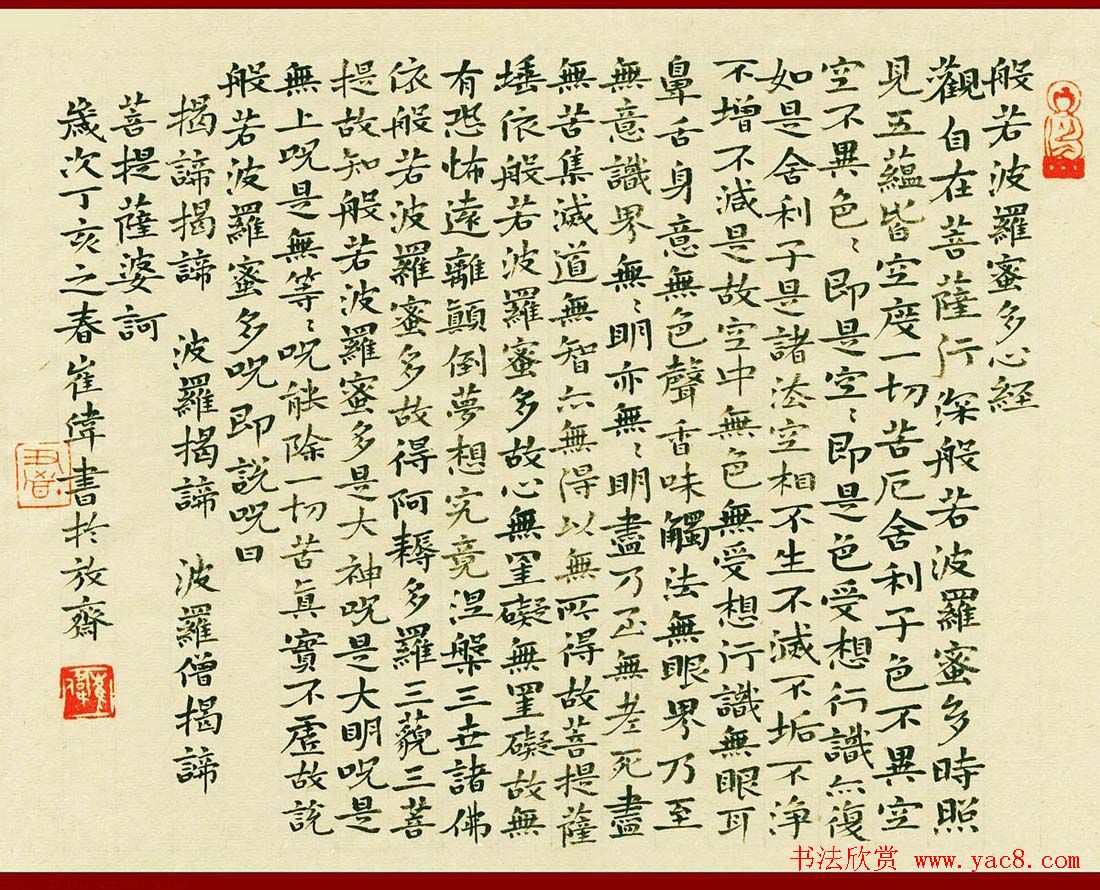 般若波羅蜜多心經
觀自在菩薩行深般若波羅蜜多時照
見五蘊皆空度一切苦厄舍利子色不異空
空不異色〻即是空〻即是色受想行識亦復
如是舍利子是諸法空相不生不滅不垢不淨
不增不減是故空中無色無受想行識無眼耳
鼻舌身意無色聲香味觸法無眼界乃至
無意識界無〻明亦無〻明盡乃至無老死盡
無苦集滅道無智亦無得以無所得故菩提薩
埵依般若波羅蜜多故心無罣礙無罣礙故無
有恐怖遠離顛倒夢想究竟涅槃三世諸佛
依般若波羅蜜多故得阿耨多羅三藐三菩
提故知般若波羅蜜多是大神呪是大明呪是
無上呪是無等〻呪能除一切苦真實不虛故說
般若波羅蜜多呪即說呪曰
揭諦揭諦 波羅揭諦 波羅僧揭諦
菩提薩婆訶
歲次丁亥之春崔偉書於放齋
崔偉
书法欣赏 www.yac8.com